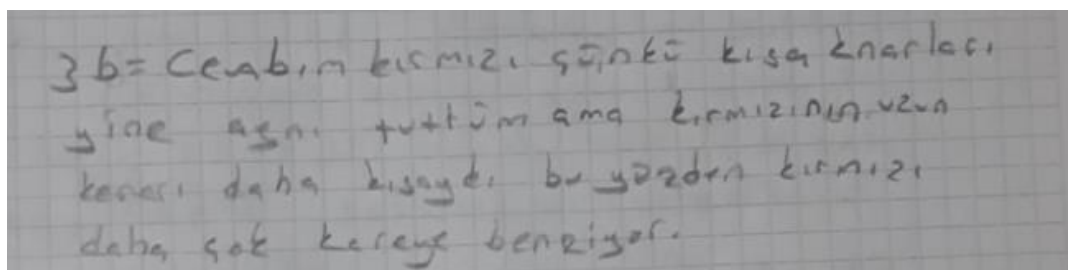 3b= Cevabım kırmızı çünkü kısa knarları
yine aynı tuttüm ama kırmızının uzun
kenarı daha kısaydı bu yüzden kırmızı
daha çok kareye benziyor.